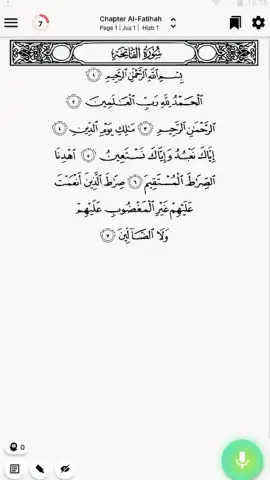 7
Chapter Al-Fatihah
Page 1 | Juz 1 | Hizb 1
سُورَةُ الفَاتِحَةِ
بِسْمِ ٱللَّهِ ٱلرَّحْمَٰنِ ٱلرَّحِيمِ ١
ٱلْحَمْدُ لِلَّهِ رَبِّ ٱلْعَٰلَمِينَ ٢
ٱلرَّحْمَٰنِ ٱلرَّحِيمِ ٣ مَٰلِكِ يَوْمِ ٱلدِّينِ ٤
إِيَّاكَ نَعْبُدُ وَإِيَّاكَ نَسْتَعِينُ ٥ ٱهْدِنَا
ٱلصِّرَٰطَ ٱلْمُسْتَقِيمَ ٦ صِرَٰطَ ٱلَّذِينَ أَنْعَمْتَ
عَلَيْهِمْ غَيْرِ ٱلْمَغْضُوبِ عَلَيْهِمْ
وَلَا ٱلضَّآلِّينَ ٧
0